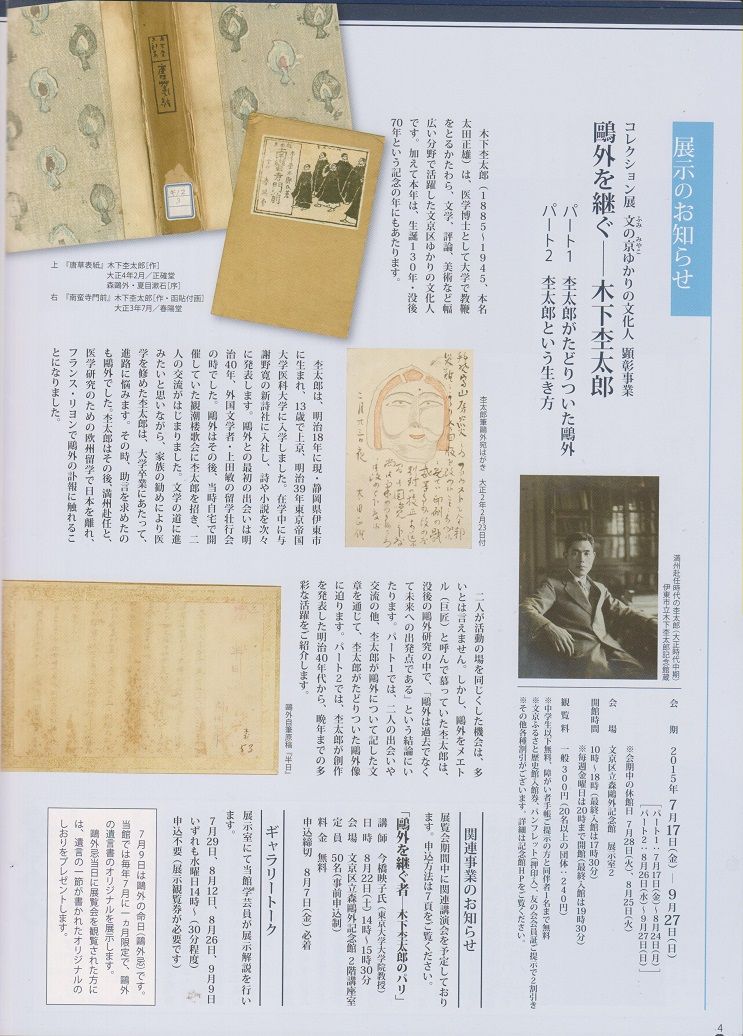 展示のお知らせ
コレクション展 文の京ゆかりの文化人 顕彰事業
ふみ みやこ
鷗外を継ぐ――木下杢太郎
パート1 杢太郎がたどりついた鷗外
パート2 杢太郎という生き方
木下杢太郎(1885〜1945、本名
太田正雄)は、医学博士として大学で教鞭
をとるかたわら、文学、評論、美術など幅
広い分野で活躍した文京区ゆかりの文化人
です。加えて本年は、生誕130年・没後
70年という記念の年にもあたります。
上 『唐草表紙』木下杢太郎[作]
大正4年2月/正確堂
森鷗外・夏目漱石[序]
右 『南蛮寺門前』木下杢太郎[作・函貼付画]
大正3年7月/春陽堂
満州赴任時代の杢太郎(大正時代中期)
伊東市立木下杢太郎記念館蔵
杢太郎筆鷗外宛はがき 大正2年2月23日付
杢太郎は、明治18年に現・静岡県伊東市
に生まれ、13歳で上京、明治39年東京帝国
大学医科大学に入学しました。在学中に与
謝野寛の新詩社に入社し、詩や小説を次々
に発表します。鷗外との最初の出会いは明
治40年、外国文学者・上田敏の留学壮行会
の時でした。鷗外はその後、当時自宅で開
催していた観潮楼歌会に杢太郎を招き、二
人の交流がはじまりました。文学の道に進
みたいと思いながら、家族の勧めにより医
学を修めた杢太郎は、大学卒業にあたって、
進路に悩みます。その時、助言を求めたの
も鷗外でした。杢太郎はその後、満州赴任と、
医学研究のための欧州留学で日本を離れ、
フランス・リヨンで鷗外の訃報に触れるこ
とになりました。
二人が活動の場を同じくした機会は、多
いとは言えません。しかし、鷗外をメエト
ル(巨匠)と呼んで慕っていた杢太郎は、
没後の鷗外研究の中で、「鷗外は過去でなく
て未来への出発点である」という結論にい
たります。パート1では、二人の出会いや
交流の他、杢太郎が鷗外について記した文
章を通じて、杢太郎がたどりついた鷗外像
に迫ります。パート2では、杢太郎が創作
を発表した明治40年代から、晩年までの多
彩な活躍をご紹介します。
鷗外自筆原稿「半日」
会 期 2015年7月17日(金)〜9月27日(日)
パート1・7月17日(金)〜8月24日(月)
パート2・8月26日(水)〜9月27日(日)
※会期中の休館日 7月28日(火)、8月25日(火)
会 場 文京区立森鷗外記念館 展示室2
開館時間 10時〜18時(最終入館は17時30分)
※毎週金曜日は20時まで開館(最終入館は19時30分)
観覧料 一般300円(20名以上の団体:240円)
※中学生以下無料、障がい者手帳ご提示の方と同伴者1名まで無料
※文京ふるさと歴史館入館券、パンフレット(押印入)、友の会会員証ご提示で2割引き
※その他各種割引がございます。詳細は記念館HPをご覧ください。
関連事業のお知らせ
展覧会期間中に関連講演会を予定しており
ます。申込方法は7頁をご覧ください。
「鷗外を継ぐ者―木下杢太郎のパリ」
講 師 今橋映子氏(東京大学大学院教授)
日 時 8月22日(土)14時〜15時30分
会 場 文京区立森鷗外記念館 2階講座室
定 員 50名(事前申込制)
料 金 無料
申込締切 8月7日(金)必着
ギャラリートーク
展示室にて当館学芸員が展示解説を行い
ます。
7月29日、8月12日、8月26日、9月9日
いずれも水曜日14時〜(30分程度)
申込不要(展示観覧券が必要です)
7月9日は鷗外の命日(鷗外忌)です。
当館では毎年7月に一カ月限定で、鷗外
の遺言書のオリジナルを展示します。
鷗外忌当日に展覧会を観覧された方に
は、遺言の一節が書かれたオリジナルの
しおりをプレゼントします。
4